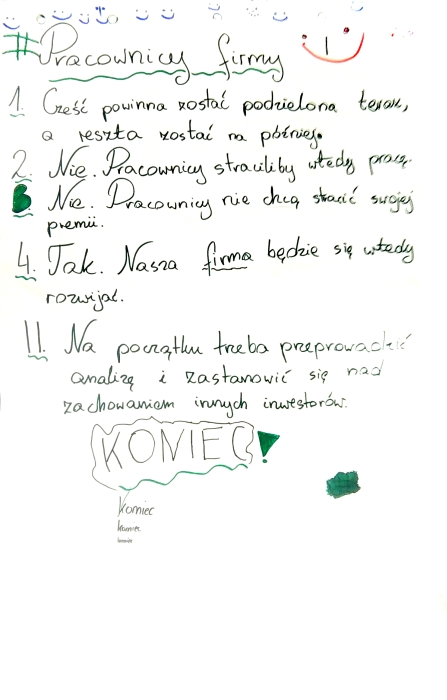 #Pracownicy firmy
1. Cześć powinna zostać podzielona teraz,
a reszta zostać na później.
2. Nie. Pracownicy straciliby wtedy pracę.
3. Nie. Pracownicy nie chcą stracić swojej
premii.
4. Tak. Nasza firma będzie się wtedy
rozwijać.
II. Na początku trzeba przeprowadzić
analizę i zastanowić się nad
zachowaniem innych inwestorów.
KONIEC!
Koniec
Koniec